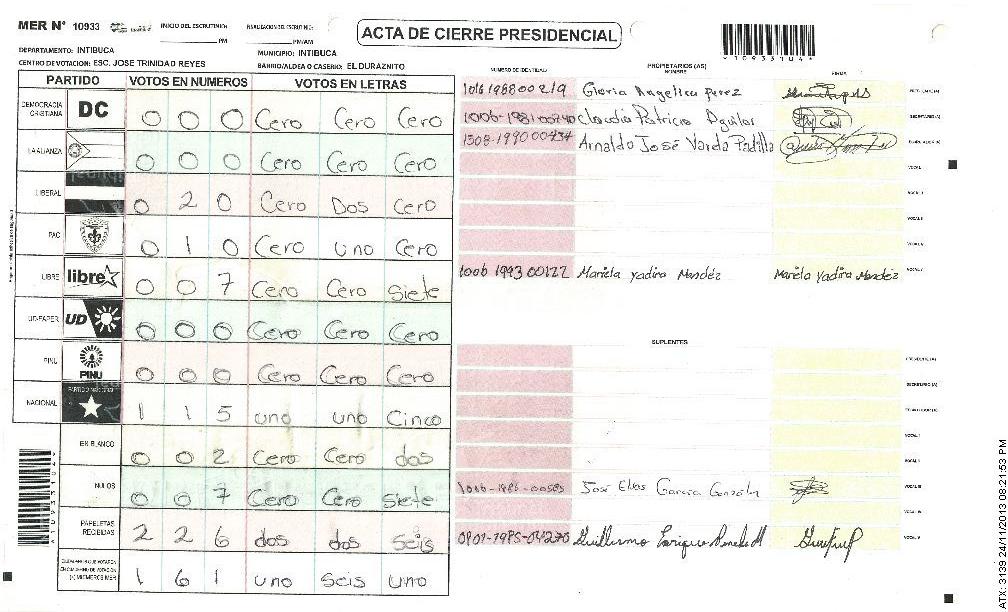 MER N° 10933 INICIO DEL ESCRUTINIO: PM FINALIZACION DEL ESCRUTINIO: PM/AM
ACTA DE CIERRE PRESIDENCIAL
DEPARTAMENTO: INTIBUCA MUNICIPIO: INTIBUCA
CENTRO DE VOTACION: ESC. JOSE TRINIDAD REYES BARRIO/ALDEA O CASERIO: EL DURAZNITO
PARTIDO VOTOS EN NUMEROS VOTOS EN LETRAS
DEMOCRACIA CRISTIANA DC 0 0 0 Cero Cero Cero
LA ALIANZA 0 0 0 Cero Cero Cero
LIBERAL 0 2 0 Cero Dos Cero
PAC 0 1 0 Cero uno Cero
LIBRE libre 0 0 7 Cero Cero Siete
UD-FAPER UD 0 0 0 Cero Cero Cero
PINU PINU 0 0 0 Cero Cero Cero
NACIONAL 1 1 5 uno uno Cinco
EN BLANCO 0 0 2 Cero Cero dos
NULOS 0 0 7 Cero Cero Siete
PAPELETAS RECIBIDAS 2 2 6 dos dos Seis
CIUDADANOS QUE VOTARON EN CUADERNO DE VOTACION (+) MIEMBROS MER 1 6 1 uno Seis uno
NUMERO DE IDENTIDAD PROPIETARIOS (AS) NOMBRE FIRMA
Gloria Angelica Perez PRESIDENTE (A)
Claudia Patricia Aguilar SECRETARIO (A)
Arnaldo José Varda Padilla ESCRUTADOR (A)
VOCAL I
VOCAL II
VOCAL III
VOCAL IV
1006 1993 00122 Mariela Yadira Mendéz Mariela Yadira Mendéz VOCAL V
SUPLENTES
PRESIDENTE (A)
SECRETARIO (A)
ESCRUTADOR (A)
VOCAL I
VOCAL II
José Elias Garcia VOCAL III
VOCAL IV
Guillermo Enrique VOCAL V
ATX: 3139 24/11/2013 08:21:53 PM